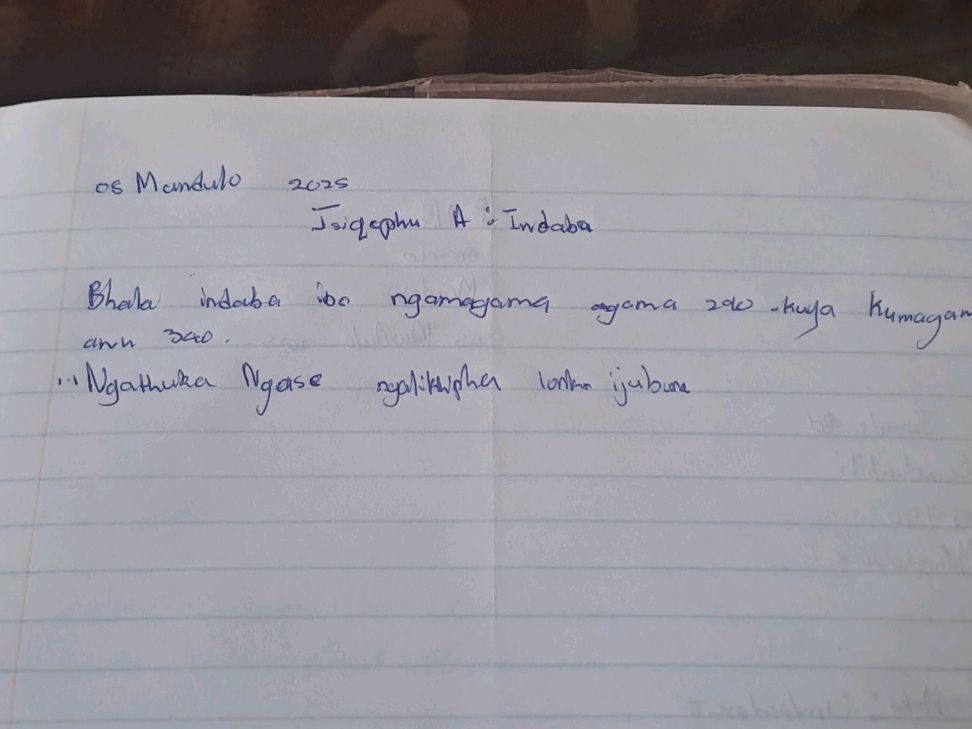 05 Mandulo 2025
Isiqephu A : Indaba
Bhala indaba ibe ngamagama agama 290 - kuya kumagam
anu 340.
... Ngathuka Ngase ngalikhipha lonke ijubane